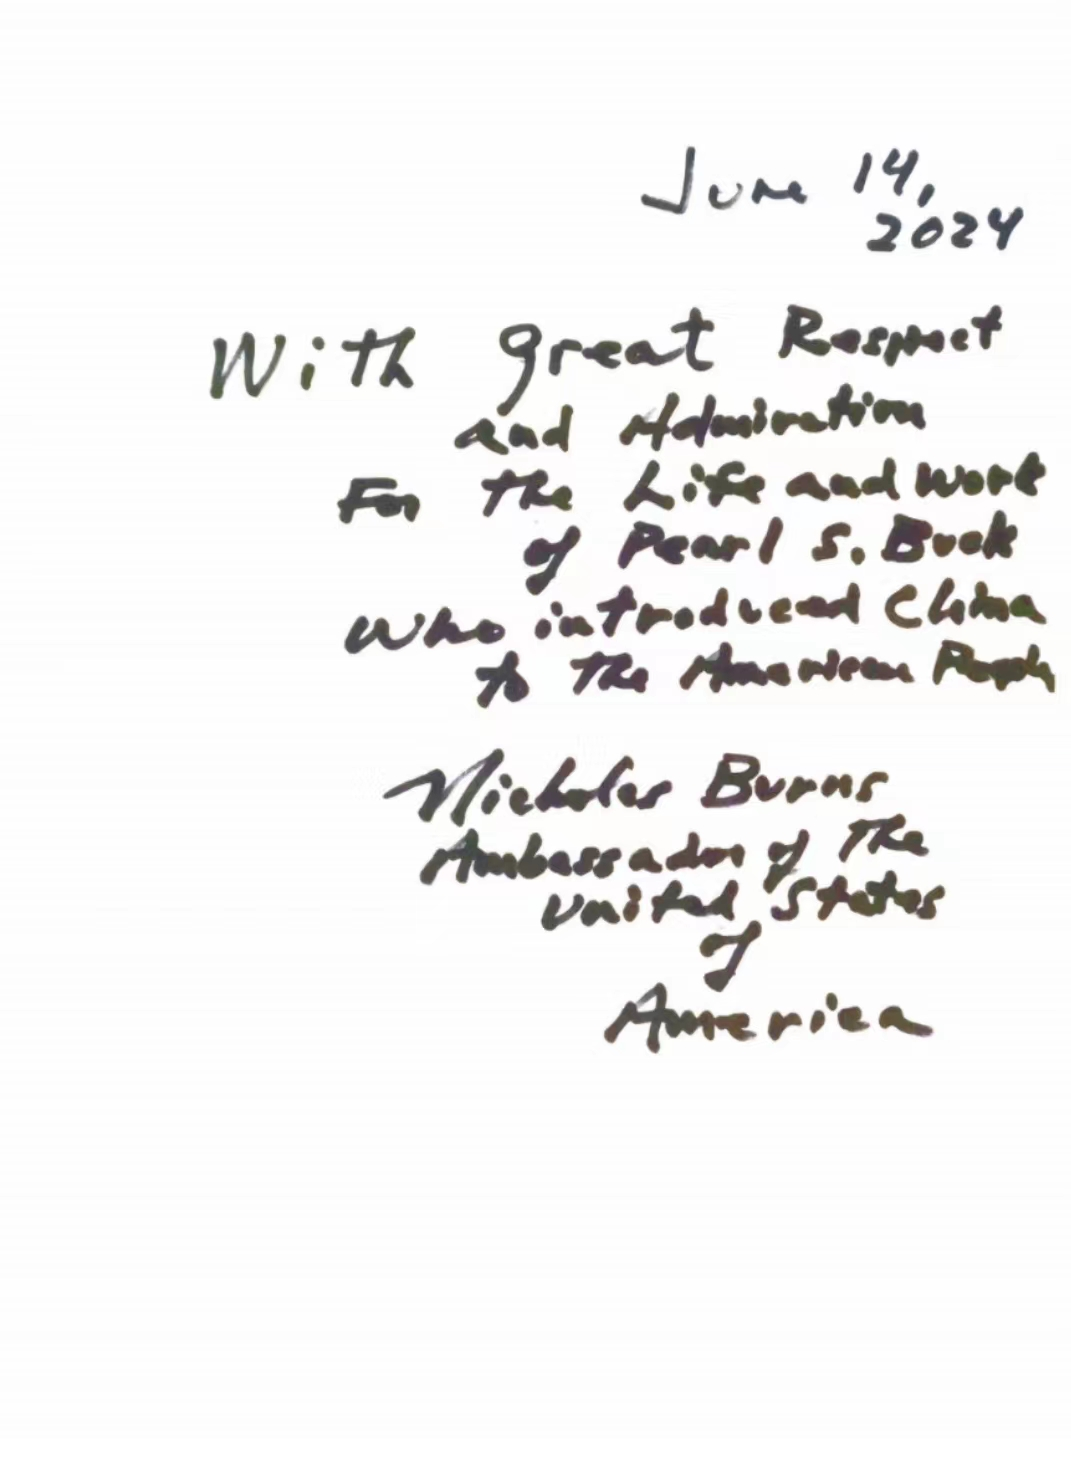 June 14,
2024
With great Respect
and Admiration
For the Life and work
of Pearl S. Buck
who introduced China
to the American People
Nicholas Burns
Ambassador of The
United States
of
America